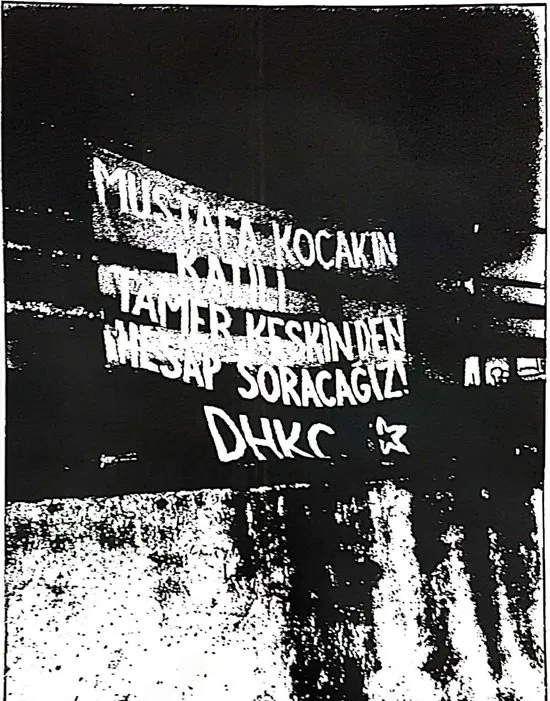 MUSTAFA KOÇAK'IN
KATİLİ
TAMER KESKİN'DEN
HESAP SORACAĞIZ!
DHKC